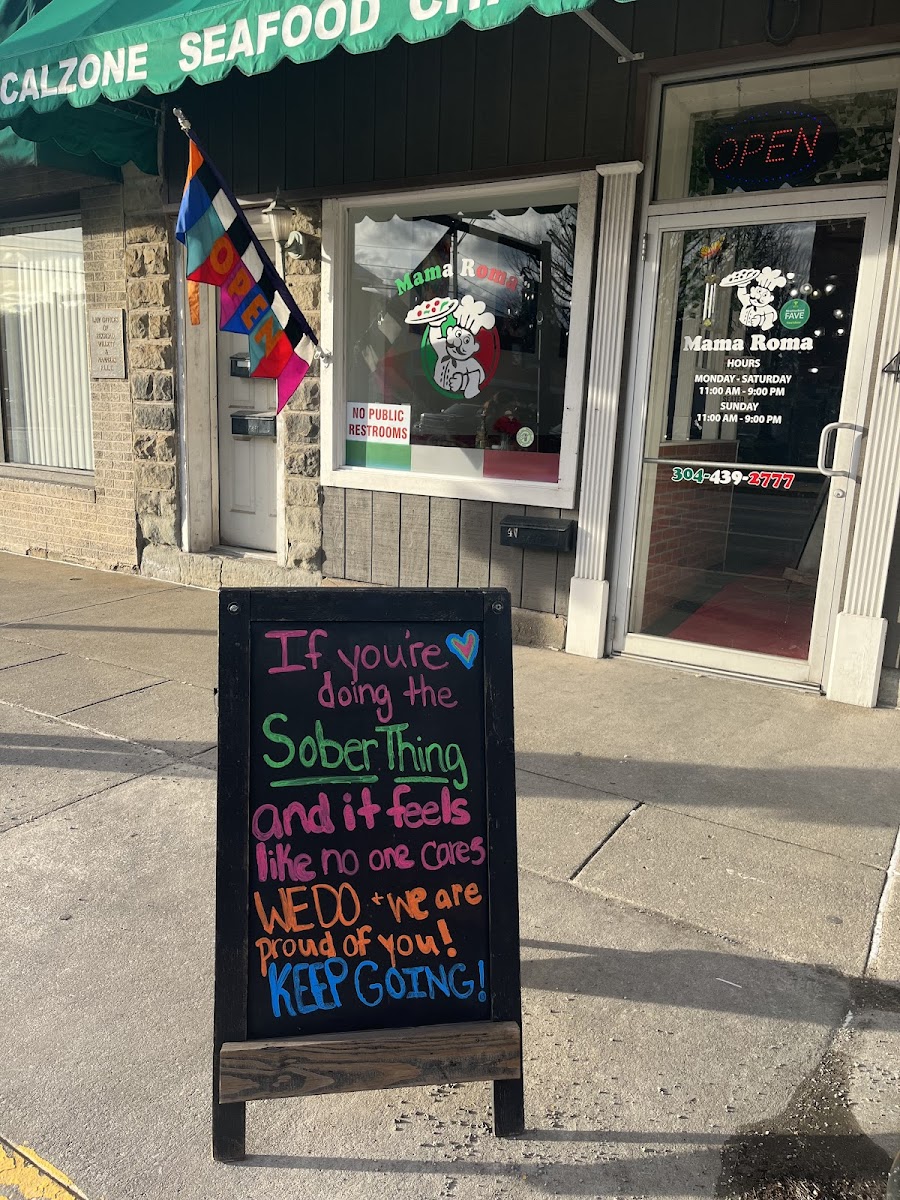 CALZONE SEAFOOD
OPEN
OPEN
Mama Roma
NO PUBLIC
RESTROOMS
FAVE
Mama Roma
HOURS
MONDAY - SATURDAY
11:00 AM - 9:00 PM
SUNDAY
11:00 AM - 9:00 PM
304-439-2777
LAW OFFICES
If you're
doing the
Sober Thing
and it feels
like no one cares
WE DO + we are
proud of you!
KEEP GOING!